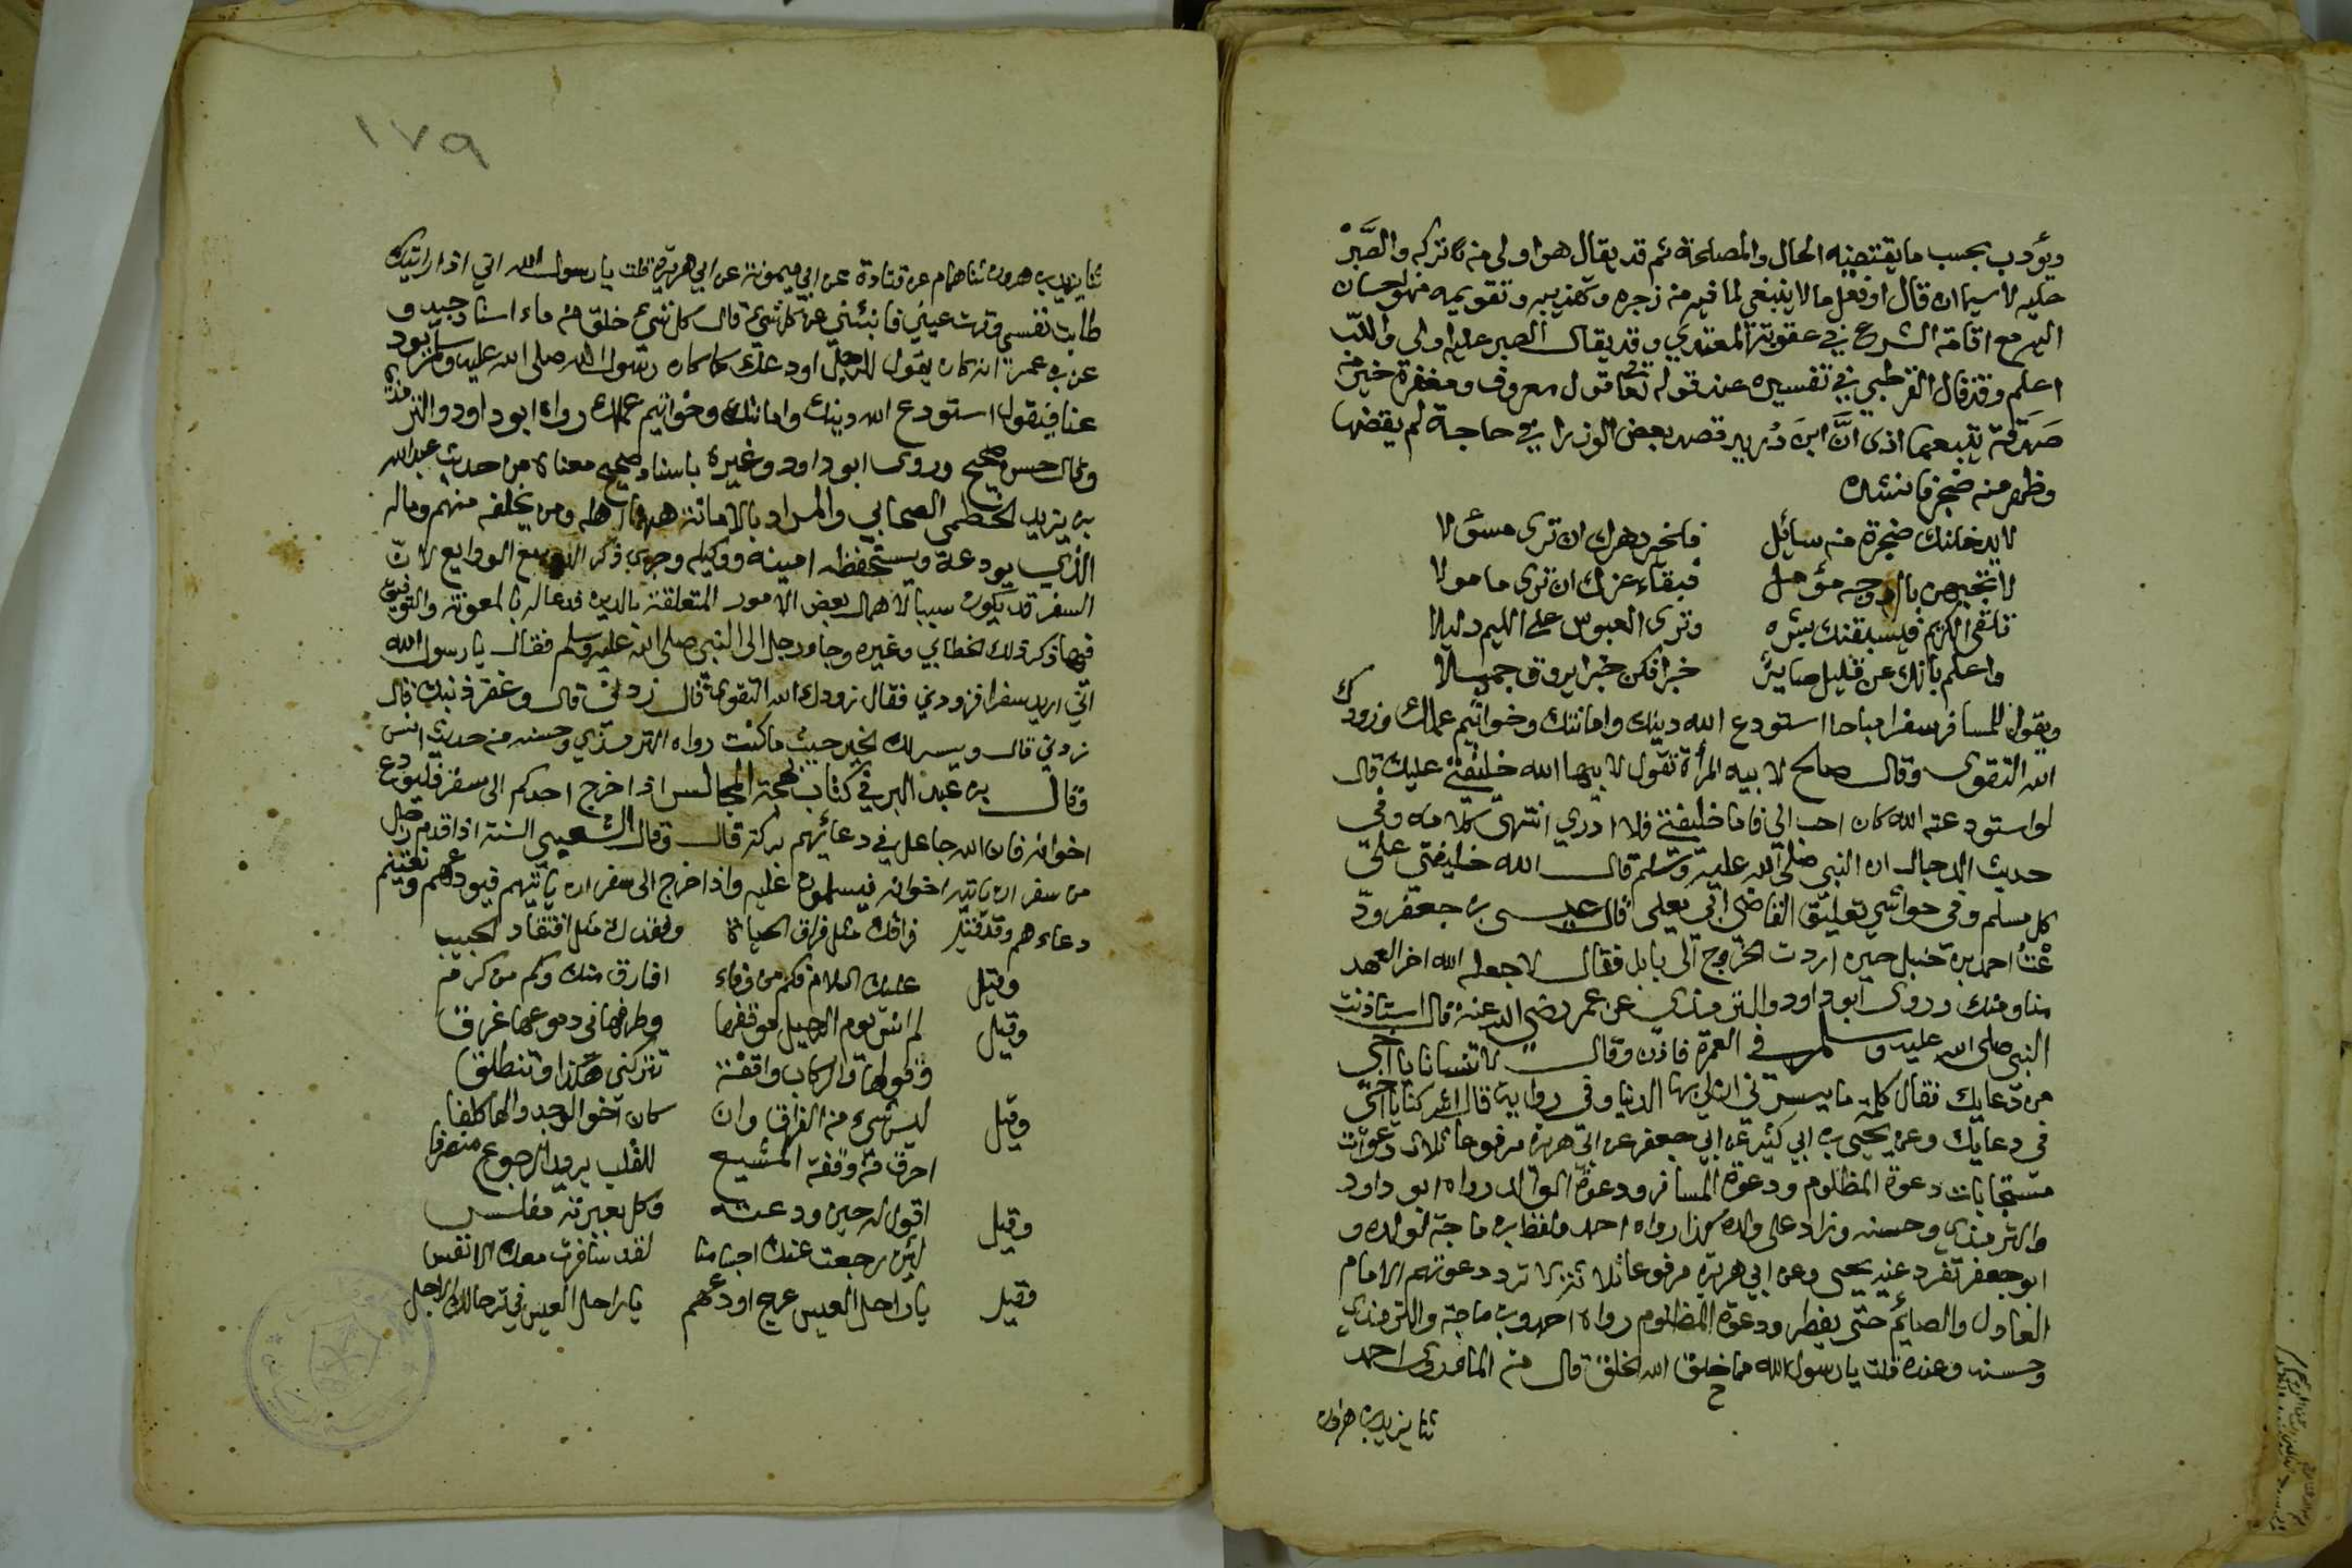 ويؤدب بحسب ما يقتضيه الحال والمصلحة ثم قد يقال هو اولى من تركه والصَّبْر
عليه لا سيما ان قال او فعل ما لا ينبغي لما فيه من زجره وتهذيبه وتقويمه فهو احسان
اليه مع اقامة الشرع في عقوبة المعتدي وقد يقال الصبر عليه اولى والله
اعلم وقد قال القرطبي في تفسيره عند قوله تعا قول معروف ومغفرة خير من
صَدَقة يتبعها اذى انَّ ابنَ دُريد قصد بعض الوزرا في حاجة لم يقضها
وظهر منه ضجر فانشده
لا يدخلنك ضجرة من سائل فلخير دهرك ان ترى مسؤلا
لا تجبهن بالرد وجه مؤمل فبقاء عزك ان ترى مامولا
تلقى الكريم فيسبقنك بشره وترى العبوس على اللئيم دليلا
واعلم بانك عن قليل صاير خبرا فكن خبرا يروق جميلا
ويقول للمسافر سفرا مباحا استودع الله دينك وامانتك وخواتيم عملك وزودك
الله التقوى وقال صالح لابيه المرأة تقول لابيها الله خليفتي عليك قال
لو استودعته الله كان احب الي فاما خليفتي فلا ادري انتهى كلامه وفي
حديث الدجال ان النبي صلى الله عليه وسلم قال الله خليفتي على
كل مسلم وفي حواشي تعليق القاضي ابي يعلى قال عيسى بن جعفر ودّ
عْتُ احمد بن حنبل حين اردت الخروج الى بابل فقال لا جعله الله اخر العهد
منا ومنك وروى ابو داود والترمذي عن عمر رضي الله عنه قال استاذنت
النبي صلى الله عليه وسلم في العمرة فاذن وقال لا تنسانا يا اخي
من دعايك فقال كلمة ما يسرني ان لي بها الدنيا وفي رواية قال اشركنا يا اخي
في دعايك وعن يحيى بن ابي كثير عن ابي جعفر عن ابي هريرة مرفوعا ثلاث دعوات
مستجابات دعوة المظلوم ودعوة المسافر ودعوة الوالد رواه ابو داود
والترمذي وحسنه وزاد على ولده كذا رواه احمد ولفظ بن ماجة لولده و
ابو جعفر تفرد عنه يحيى وعن ابي هريرة مرفوعا ثلاثة لا ترد دعوتهم الامام
العادل والصائم حتى يفطر ودعوة المظلوم رواه احمد وبن ماجة والترمذي
وحسنه وعنده قلت يا رسول الله مما خلق الله الخلق قال من الماء وروى احمد
ثنا يزيد بن هرون
١٧٩
ثنا يزيد بن هرون ثنا همام عن قتادة عن ابي ميمونة عن ابي هريرة قلت يا رسول الله اني اذا رايتك
طابت نفسي وقرت عيني فانبئني عن كل شيء قال كل شيء خلق من ماء اسناد جيد و
عن بن عمر انه كان يقول للرجل اودعك كما كان رسول الله صلى الله عليه وسلم يود
عنا فيقول استودع الله دينك وامانتك وخواتيم عملك رواه ابو داود والترمذي
وقال حسن صحيح وروى ابو داود وغيره باسناد صحيح معناه من حديث عبد الله
بن يزيد الخطمي الصحابي والمراد بالامانة هنا اهله ومن يخلفه منهم وماله
الذي يودعه ويستحفظه امينه ووكيله وجرى ذكر الدين مع الودايع لانّ
السفر قد يكون سببا لاهمال بعض الامور المتعلقة بالدين فدعا له بالمعونة والتوفيق
فيها ذكر ذلك الخطابي وغيره وجاء رجل الى النبي صلى الله عليه وسلم فقال يا رسول الله
اني اريد سفرا فزودني فقال زودك الله التقوى قال زدني قال وغفر ذنبك قال
زدني قال ويسر لك الخير حيث ما كنت رواه الترمذي وحسنه من حديث انس
وقال بن عبد البر في كتاب بهجة المجالس اذا خرج احدكم الى سفر فليودع
اخوانه فان الله جاعل في دعائهم بركة قال وقال الشعبي السنة اذا قدم رجل
من سفر ان ياتيه اخوانه فيسلمون عليه واذا خرج الى سفر ان ياتيهم فيودعهم ويغتنم
دعاءهم وقد قيل فراقك مثل فراق الحياة وفقدك مثل افتقاد الحبيب
وقيل عليك السلام فكم من وفاء افارق منك وكم من كرم
وقيل لم انس يوم الرحيل موقفها وطرفها في دموعها غرق
وقولها والركاب واقفة تتركني هكذا وتنطلق
وقيل ليس شيء من الفراق وان كان اخو الوجد والها كلفا
احرق من وقفة المشيع للقلب يريد الرجوع منصرفا
وقيل اقول له حين ودعته وكل بعبرته مفلس
لئن رجعت عنك اجسامنا لقد سافرت معك الانفس
وقيل يا راحل العيس عرج اودعهم يا راحل العيس في ترحالك الاجل